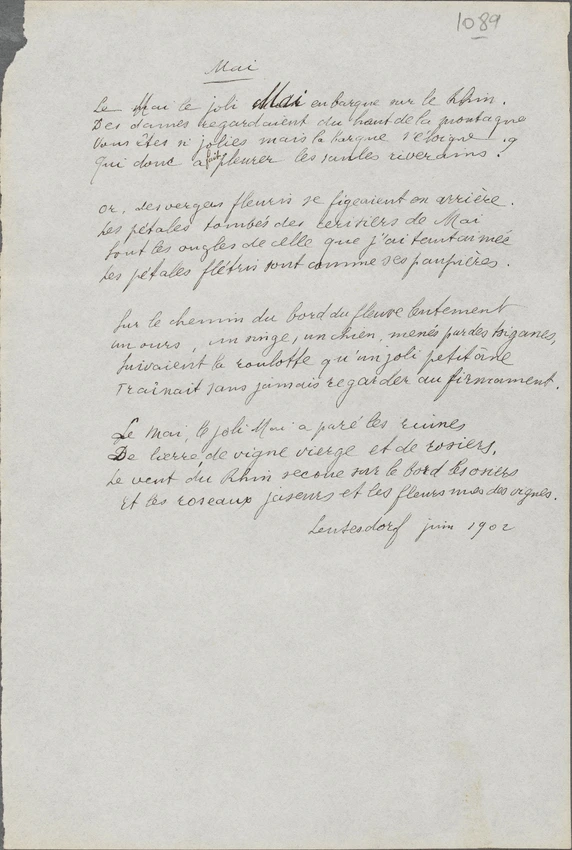 1089
Mai
Le Mai le joli Mai en barque sur le Rhin.
Des dames regardaient du haut de la montagne
Vous êtes si jolies mais la barque s'éloigne
Qui donc a fait pleurer les saules riverains ?
Or, des vergers fleuris se figeaient en arrière.
Les pétales tombés des cerisiers de Mai
Sont les ongles de celle que j'ai tant aimée
Les pétales flétris sont comme ses paupières.
Sur le chemin du bord du fleuve lentement
un ours, un singe, un chien, menés par des tsiganes,
Suivaient la roulotte qu'un joli petit âne
Traînait sans jamais regarder au firmament.
Le mai, le joli Mai a paré les ruines
De lierre, de vigne vierge et de rosiers,
Le vent du Rhin secoue sur le bord les osiers
Et les roseaux jaseurs et les fleurs nues des vignes.
Leutesdorf juin 1902